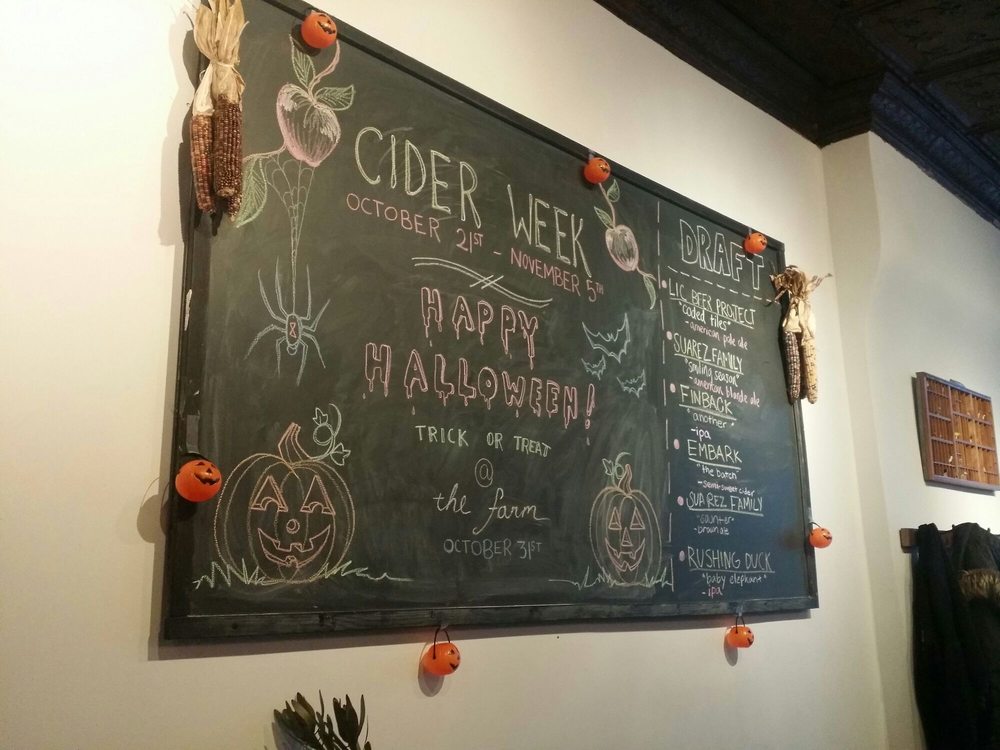 CIDER WEEK
OCTOBER 21ST - NOVEMBER 5TH
HAPPY
HALLOWEEN!
TRICK OR TREAT
@
the farm
OCTOBER 31ST
DRAFT
LIC BEER PROJECT
"coded tiles"
-american pale ale
SUAREZ FAMILY
"smiling season"
-american blonde ale
FINBACK
"another"
-ipa
EMBARK
"the batch"
-semi-sweet cider
SUAREZ FAMILY
-brown ale
RUSHING DUCK
"baby elephant"
-ipa